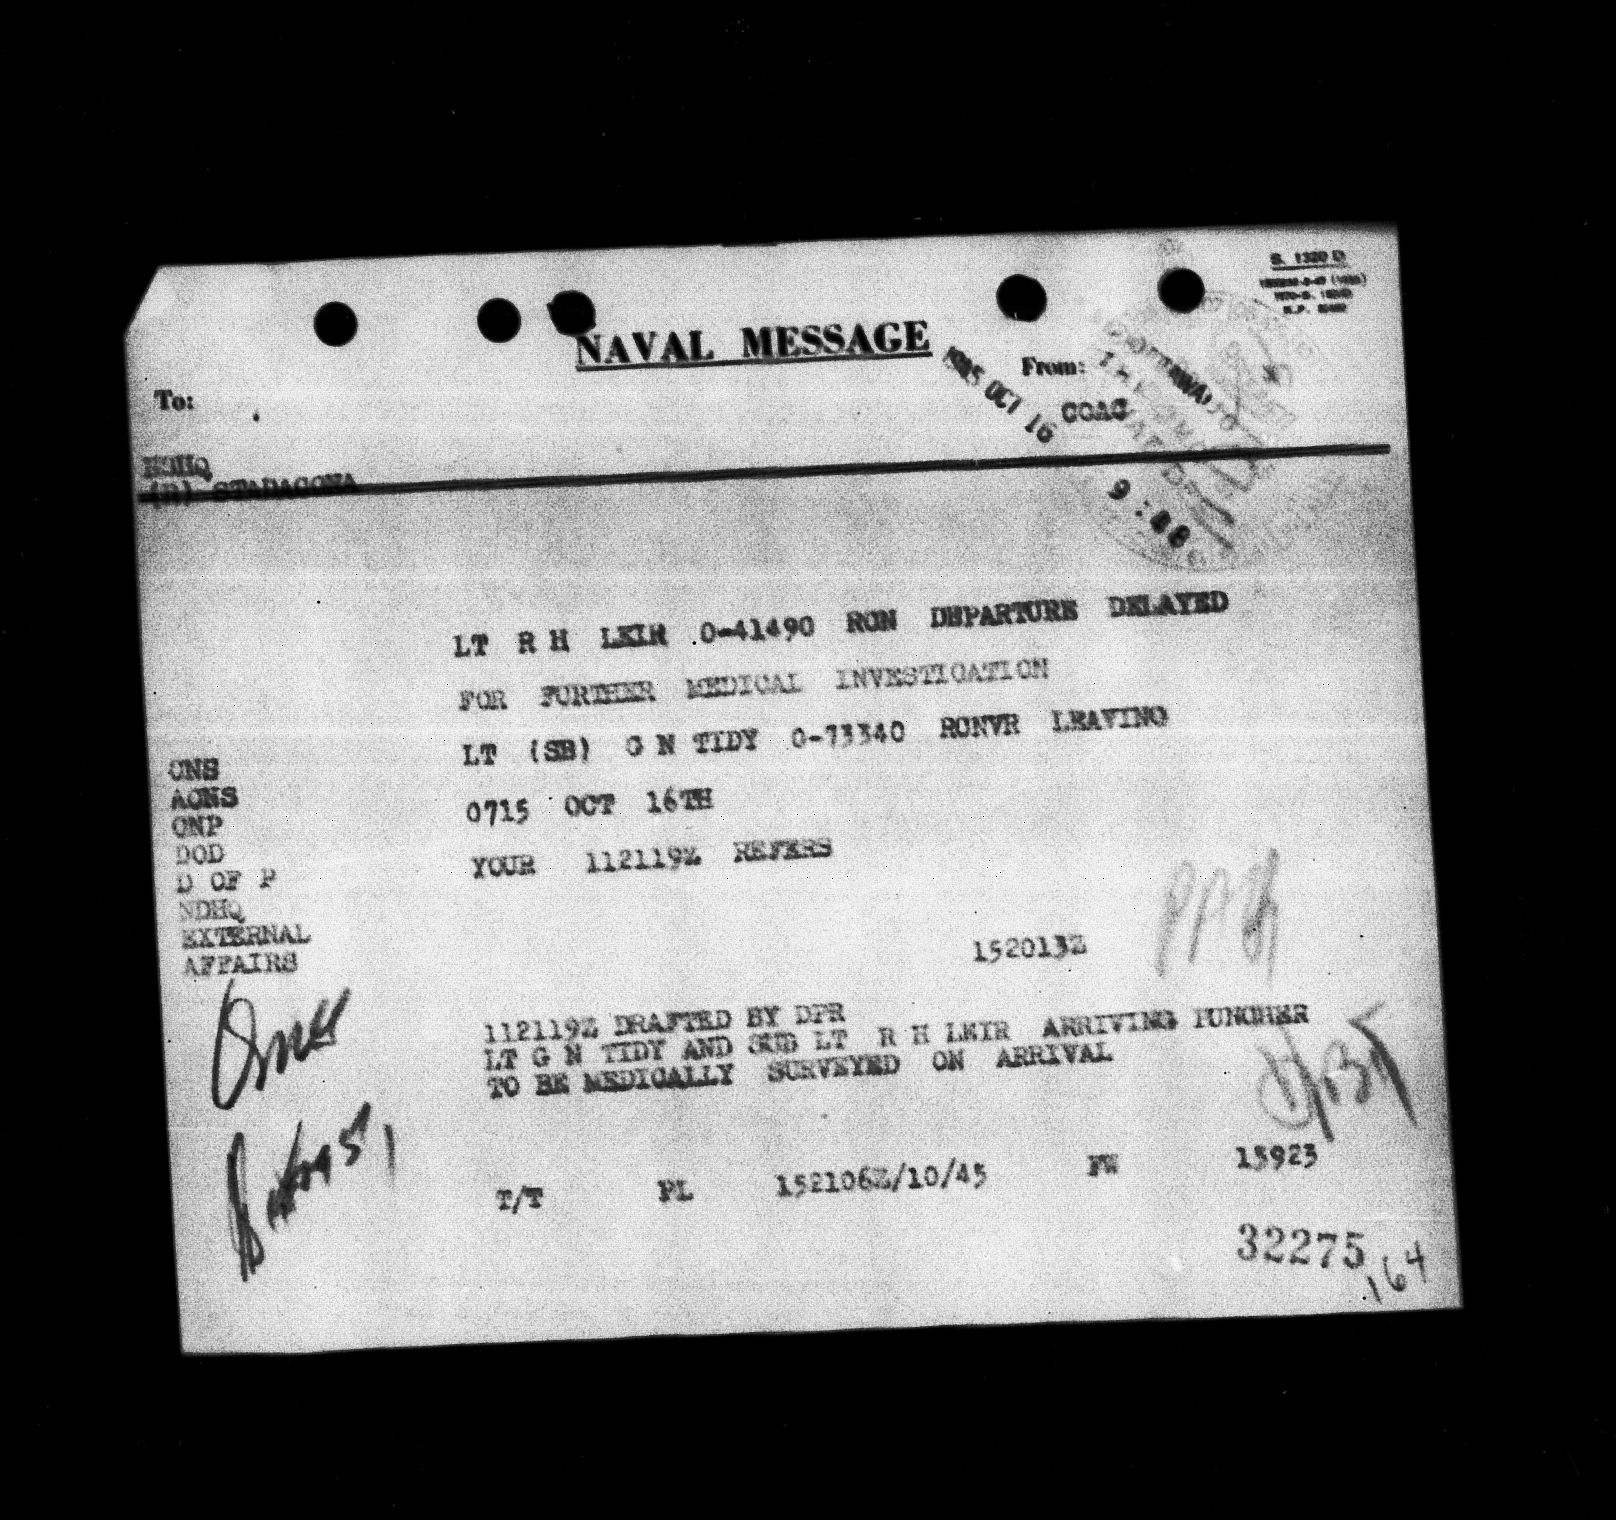 S. 1320 D
NAVAL MESSAGE
From:
1945 OCT 16
To:
COAC
NSHQ
(R) STADACONA
9:48
LT R H LEIR O-41490 RCN DEPARTURE DELAYED
FOR FURTHER MEDICAL INVESTIGATION
LT (SB) G N TIDY O-73340 RCNVR LEAVING
0715 OCT 16TH
YOUR 112119Z REFERS
CNS
ACNS
CNP
DOD
D OF P
NDHQ
EXTERNAL
AFFAIRS
152013Z
112119Z DRAFTED BY DPR
LT G N TIDY AND SUB LT R H LEIR ARRIVING PUNCHER
TO BE MEDICALLY SURVEYED ON ARRIVAL
T/T PL 152106Z/10/45 FW 15923
32275
164